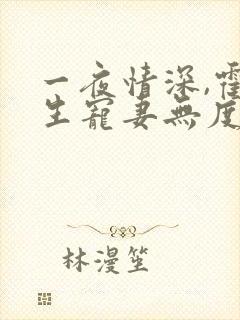 一夜情深,霍
生寵妻無度
林漫笙